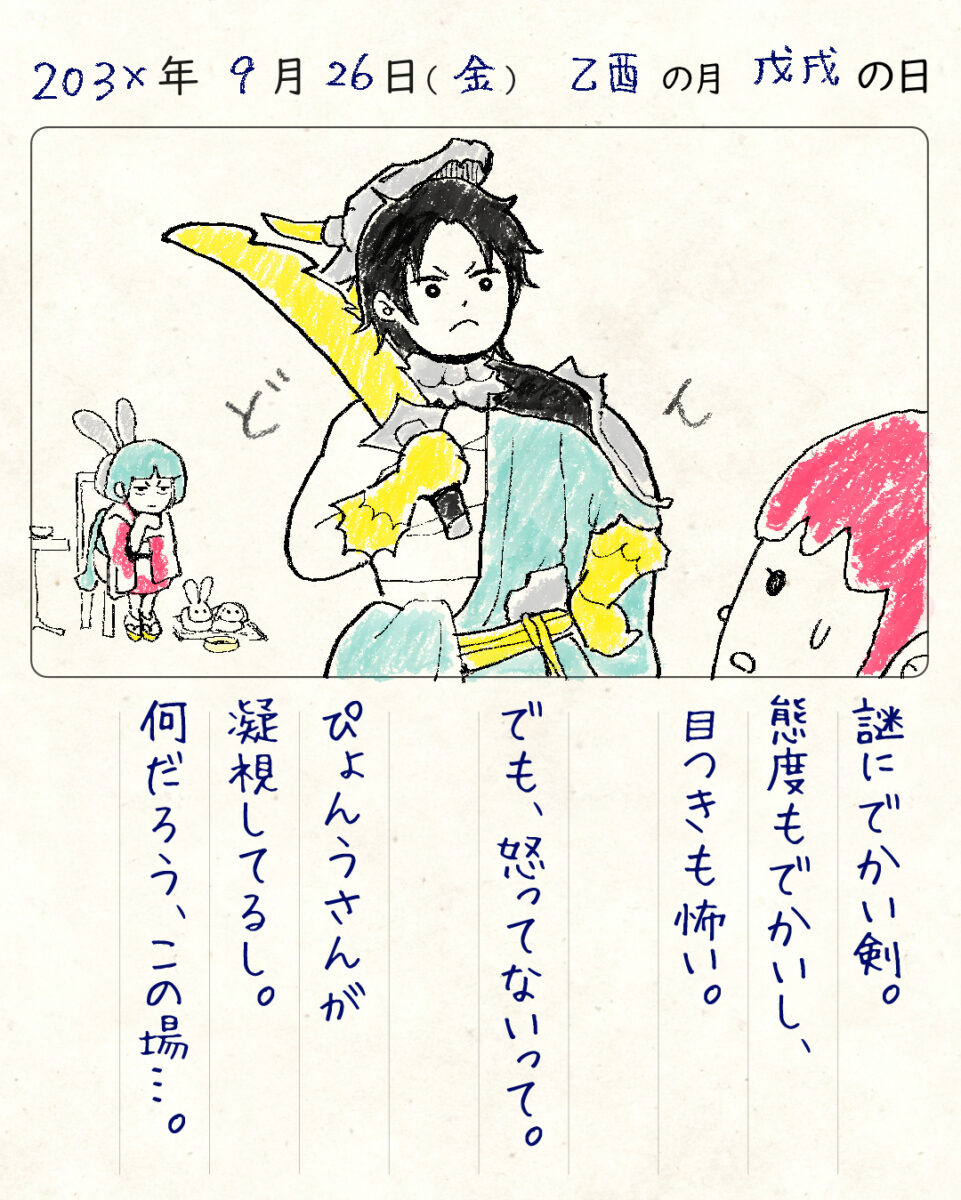 203×年 9月26日(金) 乙酉の月 戊戌の日
どん
謎にでかい剣。
態度もでかいし、
目つきも怖い。
でも、怒ってないって。
ぴょんうさんが
凝視してるし。
何だろう、この場…。